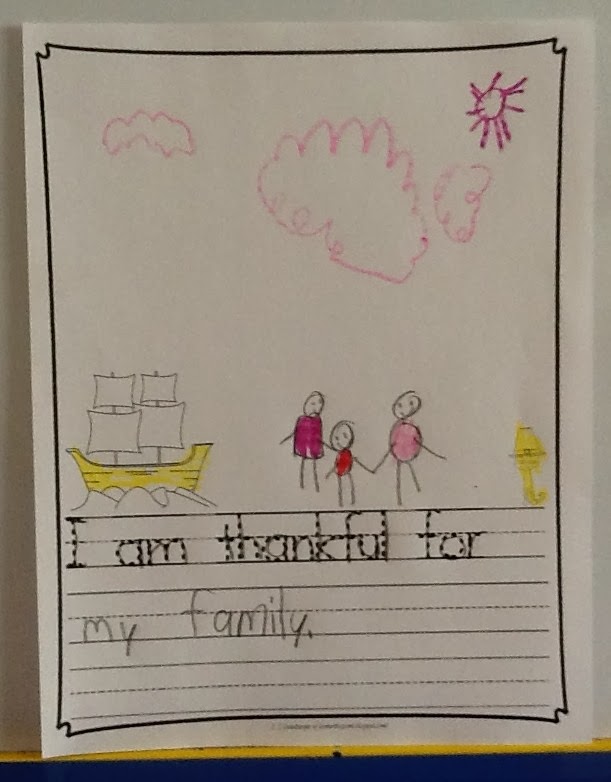 I am thankful for
my family.